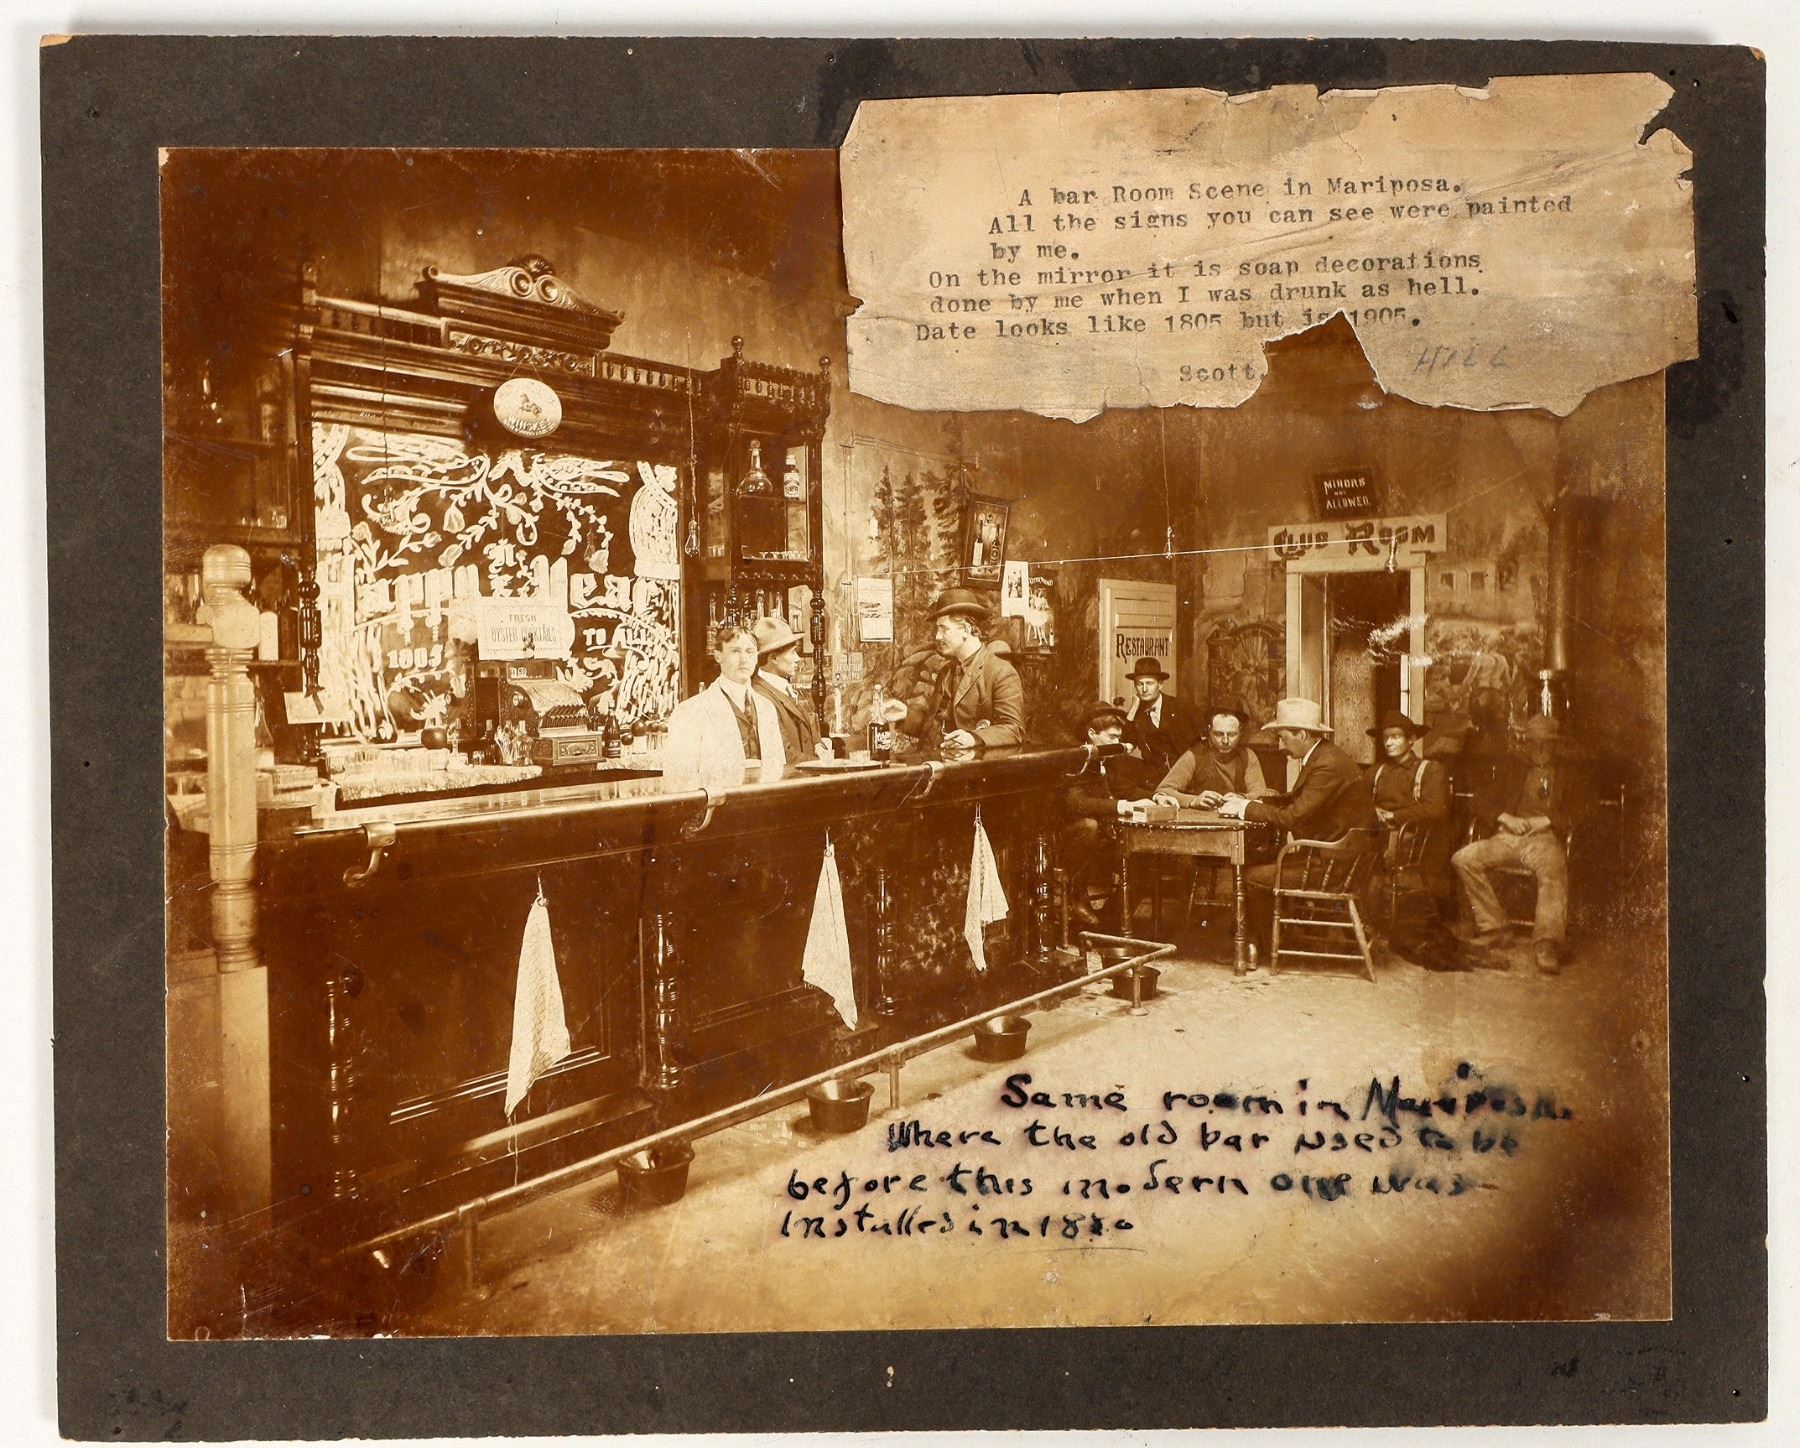 A bar Room Scene in Mariposa.
All the signs you can see were painted
by me.
On the mirror it is soap decorations
done by me when I was drunk as hell.
Date looks like 1805 but is 1905.
Scott.
HILL
MINORS
NOT
ALLOWED.
CLUB ROOM
RESTAURANT
FRESH
OYSTER COCKTAILS
TO ALL
1805
Same room in Mariposa.
Where the old bar used to be
before this modern one was
Installed in 1880